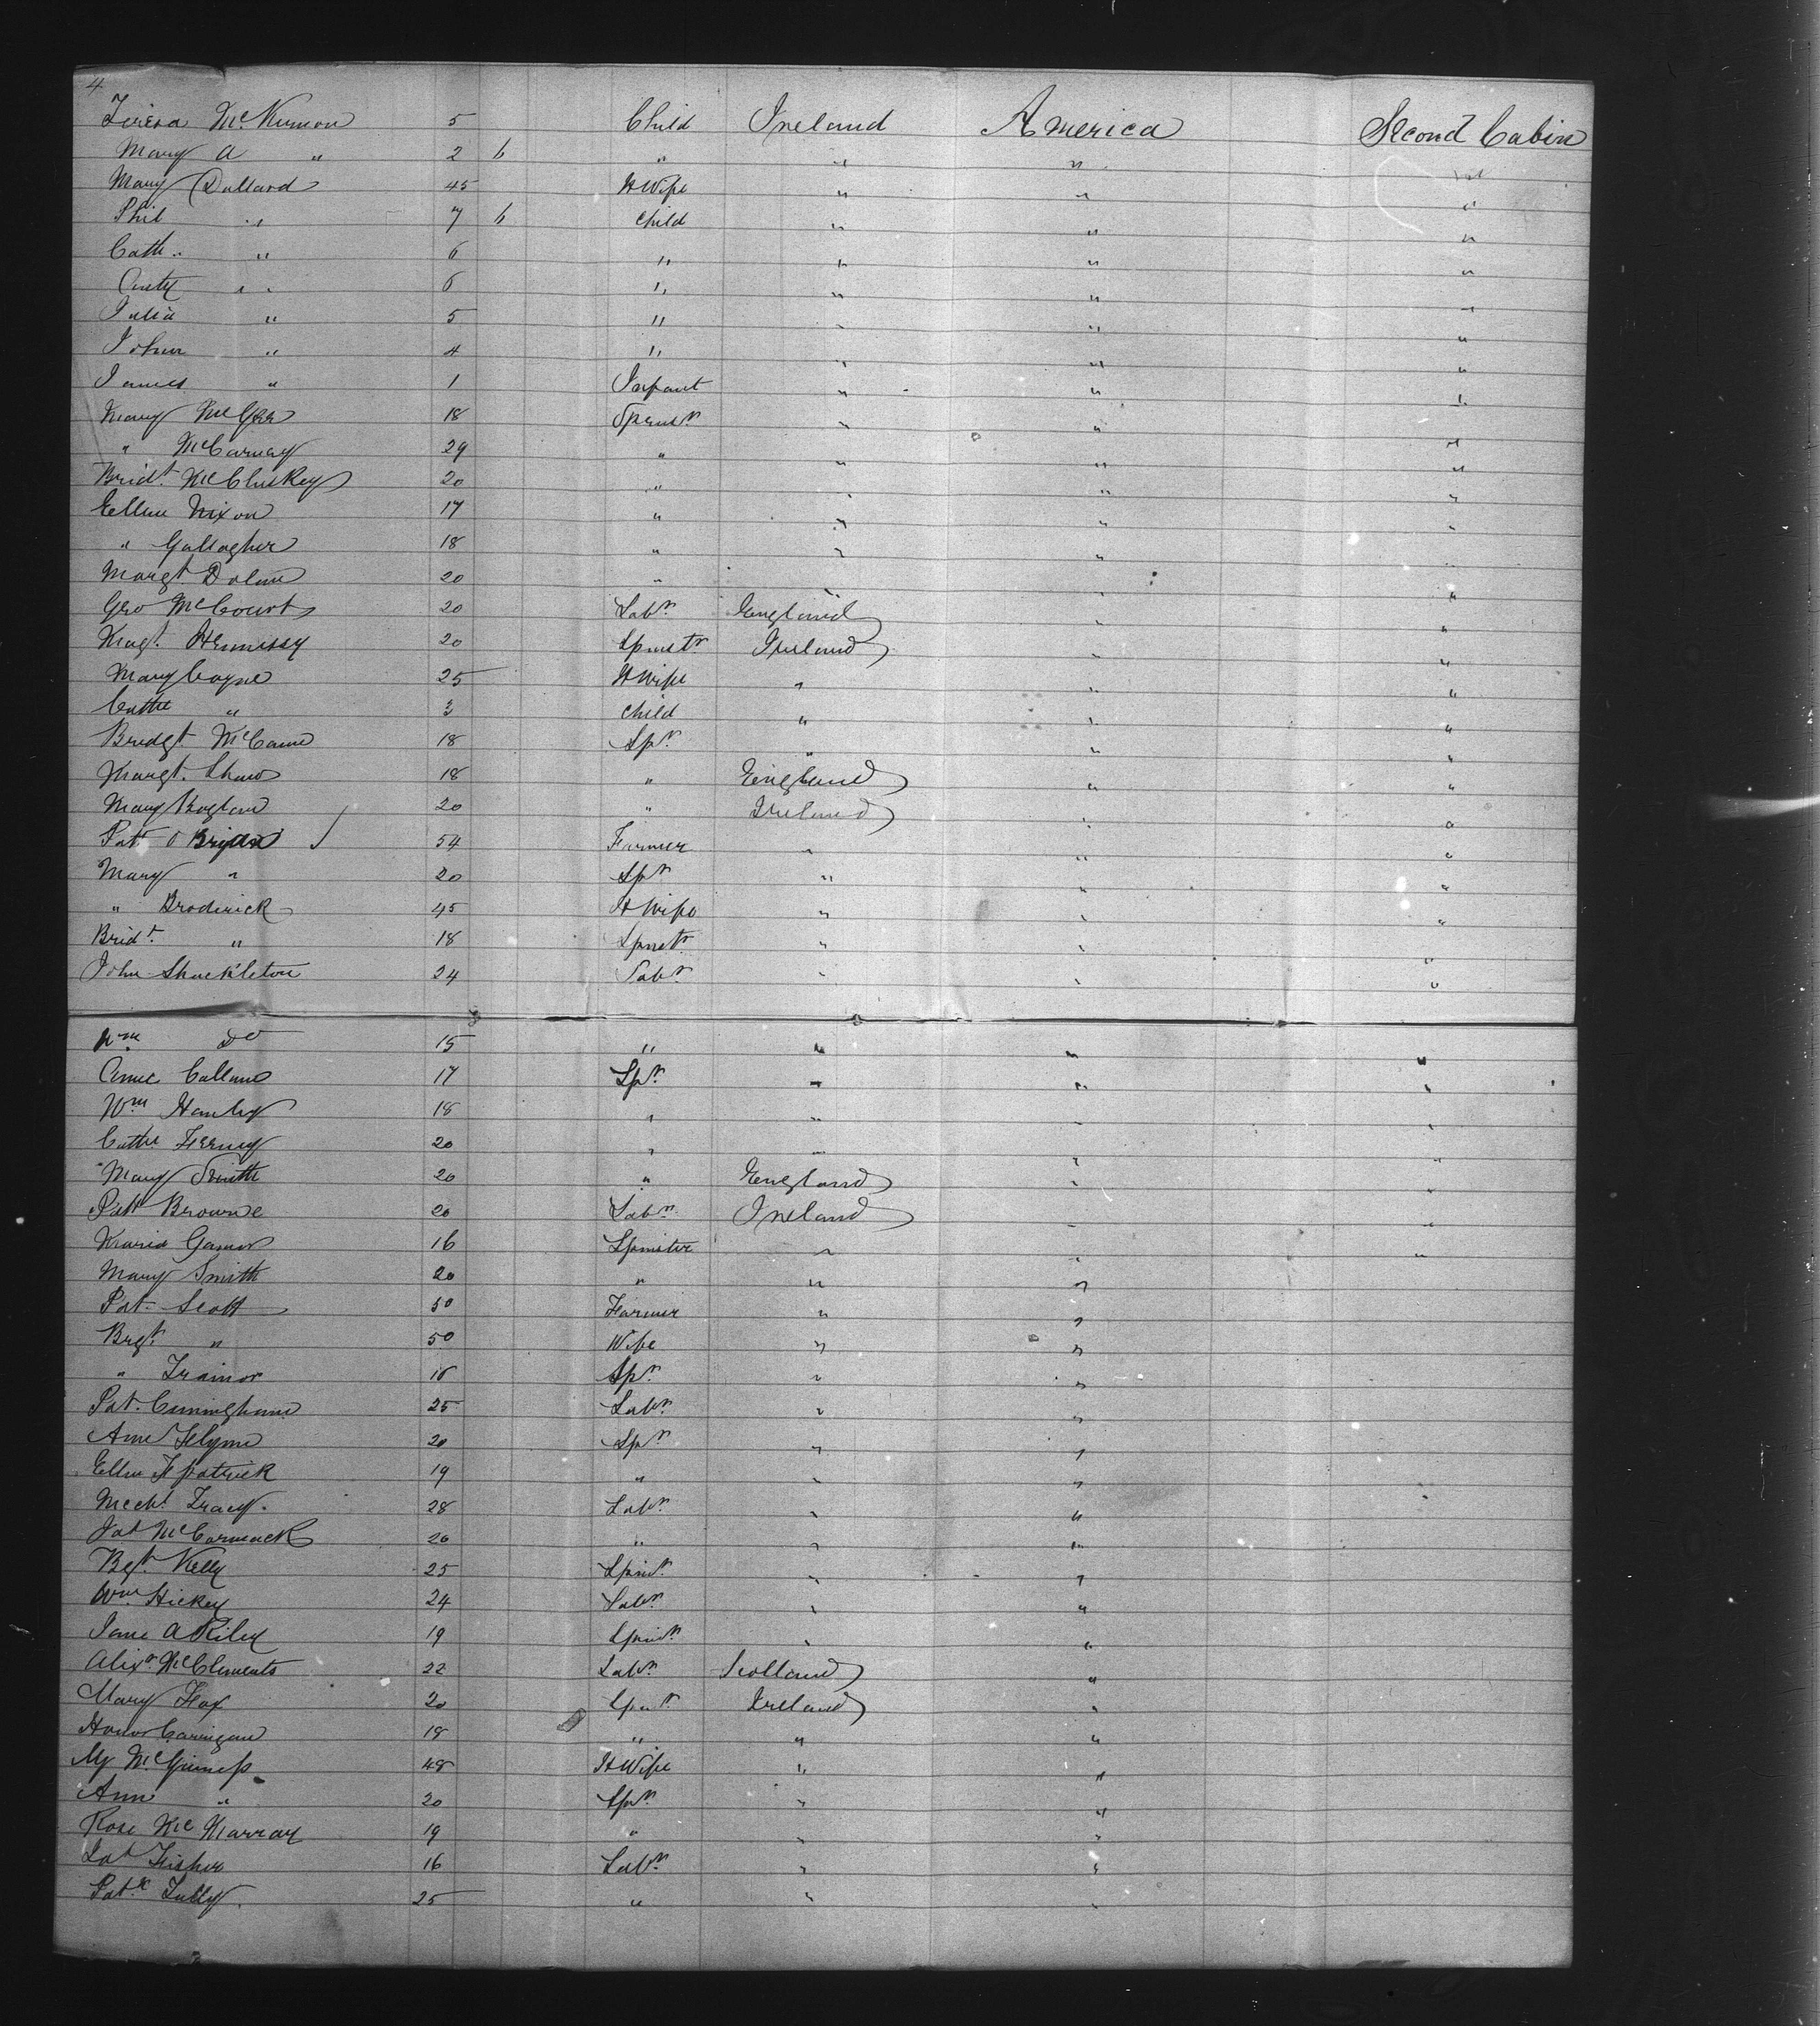 4
Teresa McKernon 5 Child Ireland America Second Cabin
Mary A " 2 6 " " " "
Mary Dullard 45 HWife " " "
Phil " 7 6 Child " " "
Cath " 6 " " " "
" 6 " " " "
Julia " 5 " " " "
John " 4 " " " "
James " 1 Infant " " "
Mary McGee 18 Spinstr " " "
" McCarney 29 " " " "
Bridt McCluskey 20 " " " "
Ellen Nixon 17 " " " "
" Gallagher 18 " " " "
Margt Dolan 20 " " " "
Geo McCourt 20 Labr England " "
Magt. Hennissy 20 Spinstr Ireland " "
Mary Coyne 25 HWife " " "
Cathe " 3 Child " " "
Bridgt McCann 18 Spr " " "
Margt. Shaw 18 " England " "
Mary 20 " Ireland " "
Pat O Brian 54 Farmer " " "
Mary " 20 Spr " " "
" Broderick 45 HWife " " "
Bridt. " 18 Spnstr " " "
John Shackleton 24 Labr " " "
Wm Do 15 " " " "
Anne Callan 17 Spr " " "
Wm Hanly 18 " " " "
Cathe 20 " " " "
Mary Smith 20 " England " "
Patt Browne 20 Labr Ireland " "
Maria 16 Spinster " " "
Mary Smith 20 " " "
Pat. Scott 50 Farmer " "
Brgt " 50 Wife " "
" Trainor 18 Spr " "
Pat. Cunningham 25 Labr " "
Ann Flynn 20 Spr " "
Ellen Fpatrick 19 " " "
Michl Tracy. 28 Labr " "
Pat McCormack 20 " " "
Bgt. Kelly 25 Spinr " "
Wm Hickey 24 Labr " "
Jane A Riley 19 Spinr " "
Alexr McClements 22 Labr Scotland "
Mary Fox 20 Spinstr Ireland "
Honor Carrigan 18 " " "
My McGuiness 48 HWife " "
Ann " 20 Spr " "
Rose McMurray 19 " " "
Fisher 16 Labr " "
Patk Tully. 25 " " "